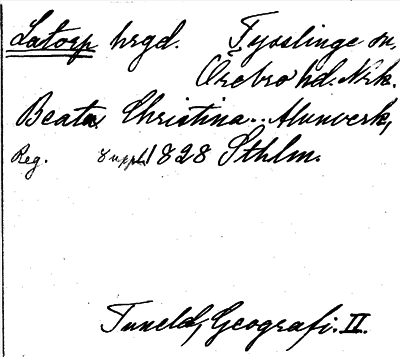 Latorp hrgd. Tysslinge sn,
Örebro hd. Nrk.
Beata Christina.. Alunverk,
Reg. Suppl. 1828 Sthlm.
Tuneld, Geografi. II.